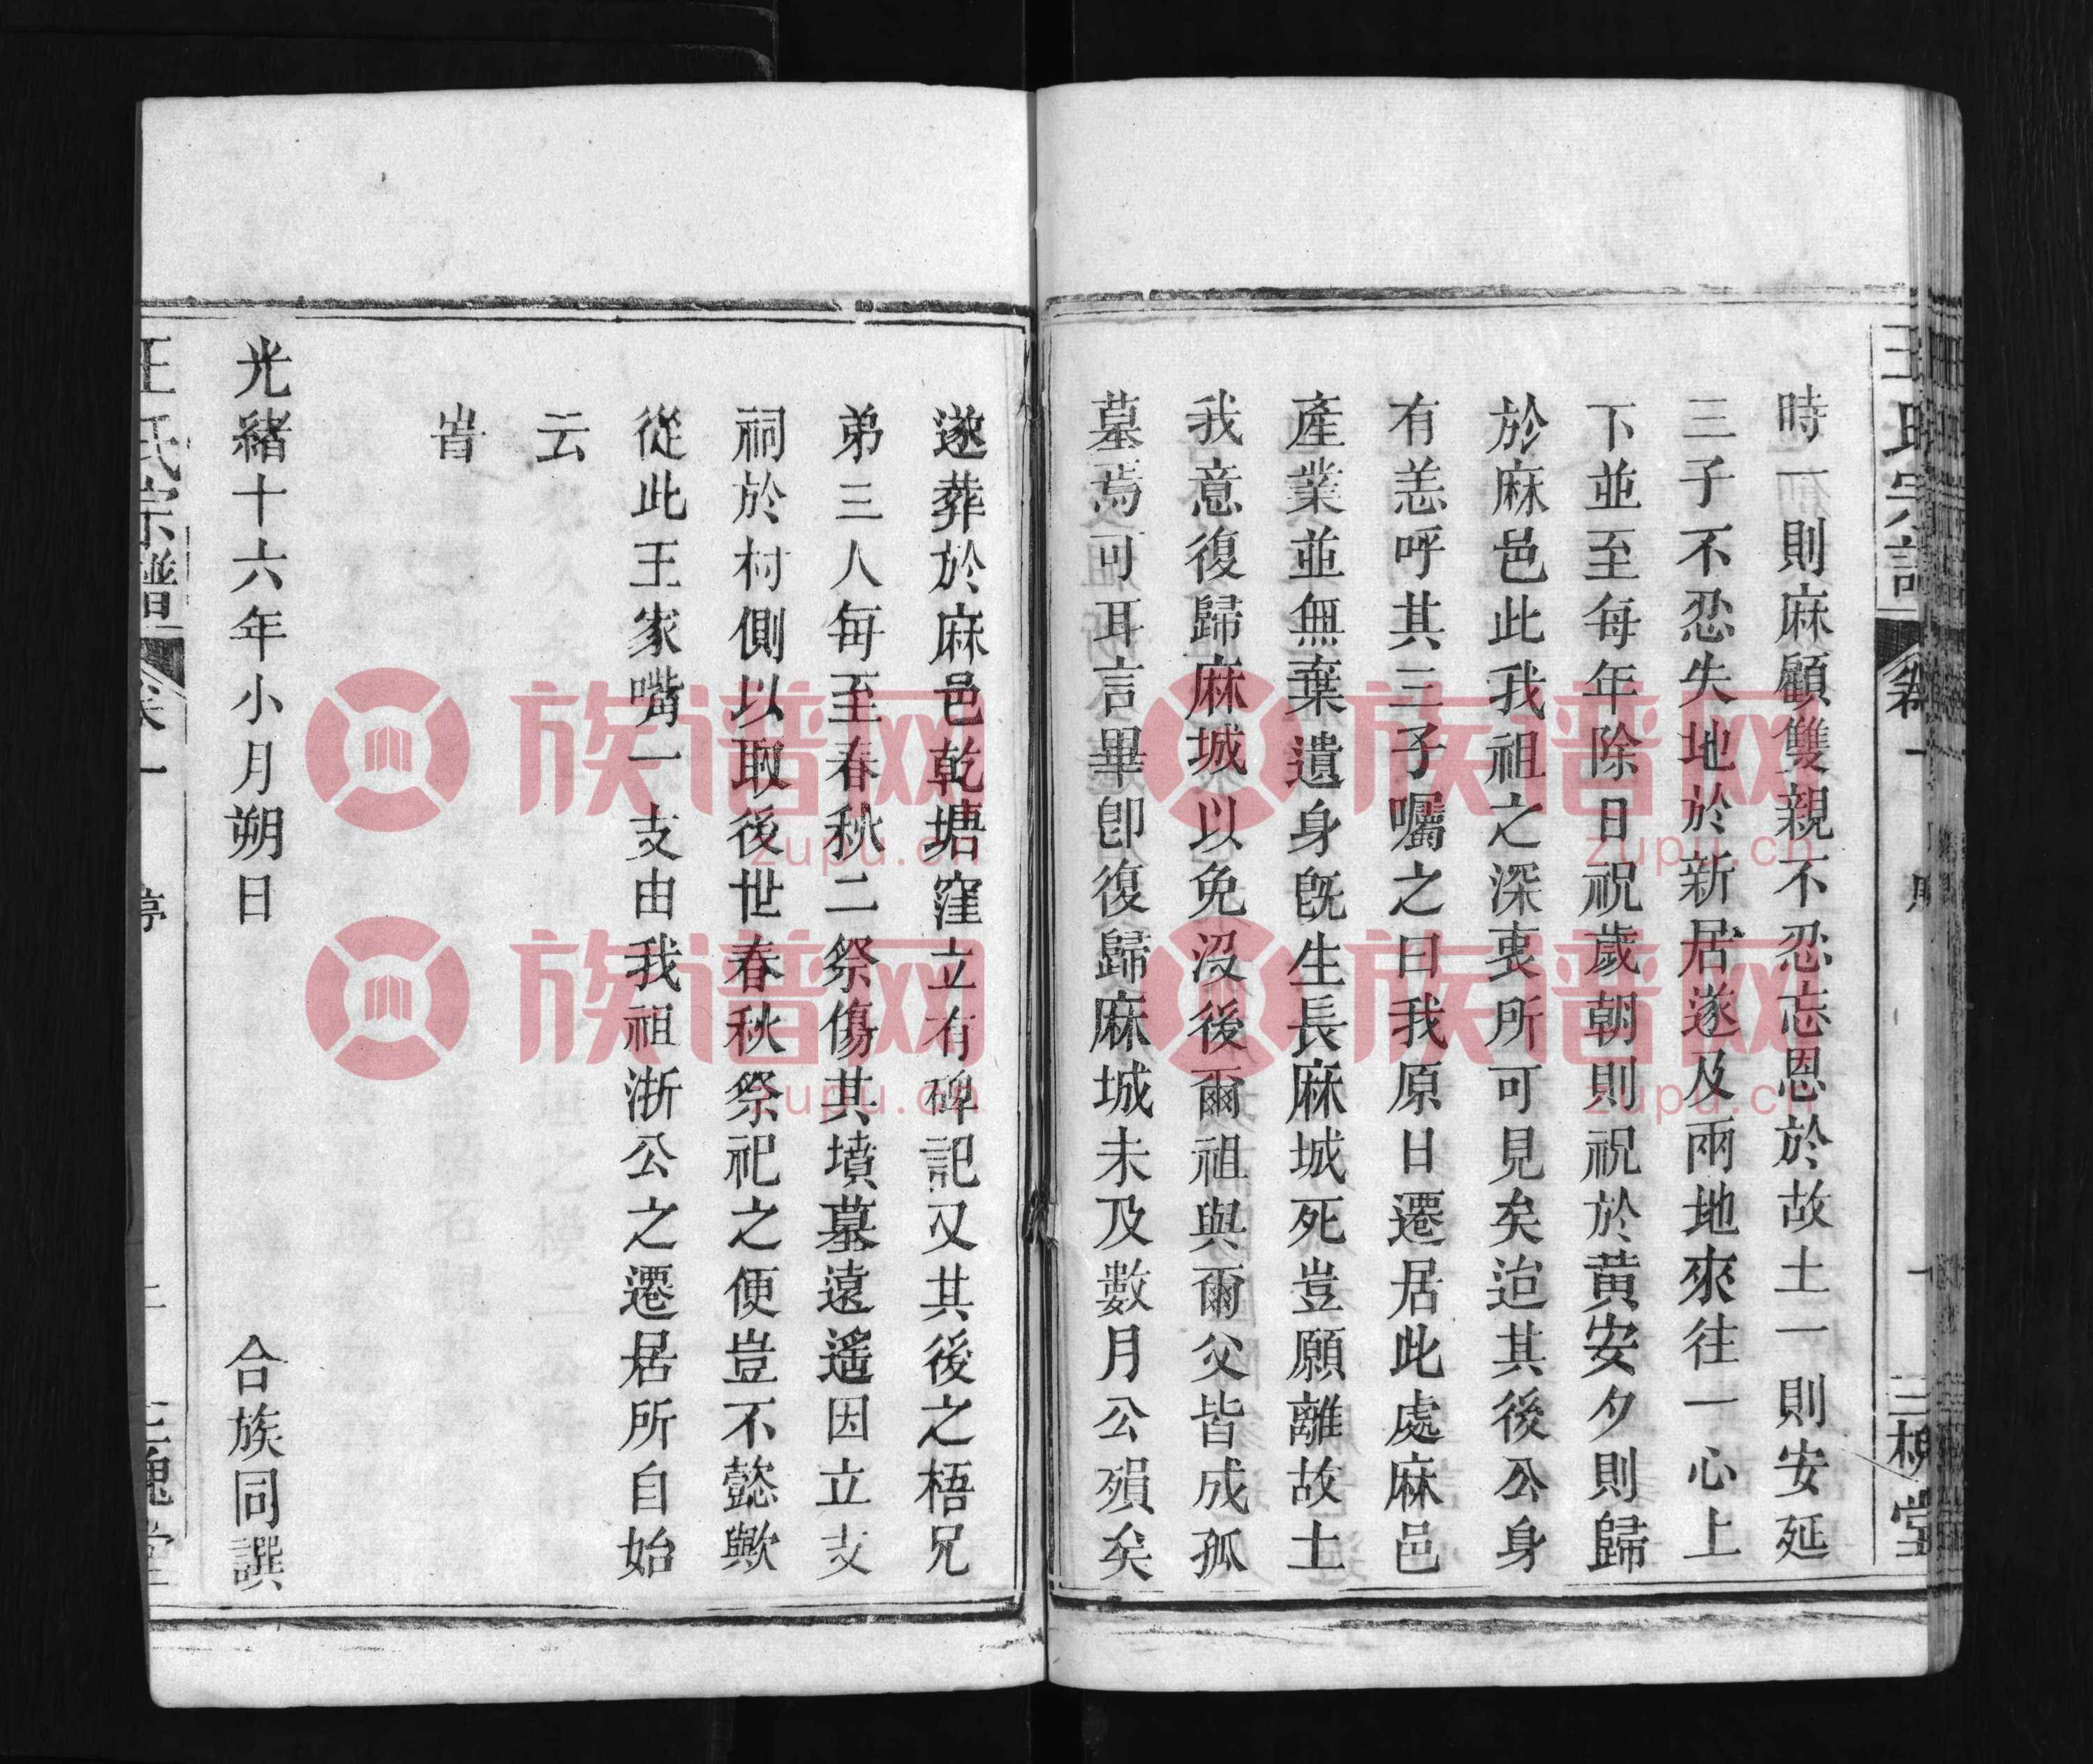 時一則麻顧雙親不忍忘恩於故土一則安延
三子不忍失地於新居遂及兩地來往一心上
下並至每年除日祝歲朝則祝於黃安夕則歸
於麻邑此我祖之深衷所可見矣迨其後公身
有恙呼其三子囑之曰我原日遷居此處麻邑
產業並無棄遺身既生長麻城死豈願離故土
我意復歸麻城以免沒後爾祖與爾父皆成孤
墓焉可耳言畢卽復歸麻城未及數月公殞矣
遂葬於麻邑乾塘窪立有碑記又其後之梧兄
弟三人每至春秋二祭傷其墳墓遠遙因立支
祠於村側以取後世春秋祭祀之便豈不懿歟
從此王家嘴一支由我祖浙公之遷居所自始
云
旹
光緒十六年小月朔日 合族同譔
王氏宗譜 卷一 三槐堂
族谱网
zupu.cn
族谱网
zupu.cn
族谱网
zupu.cn
族谱网
zupu.cn